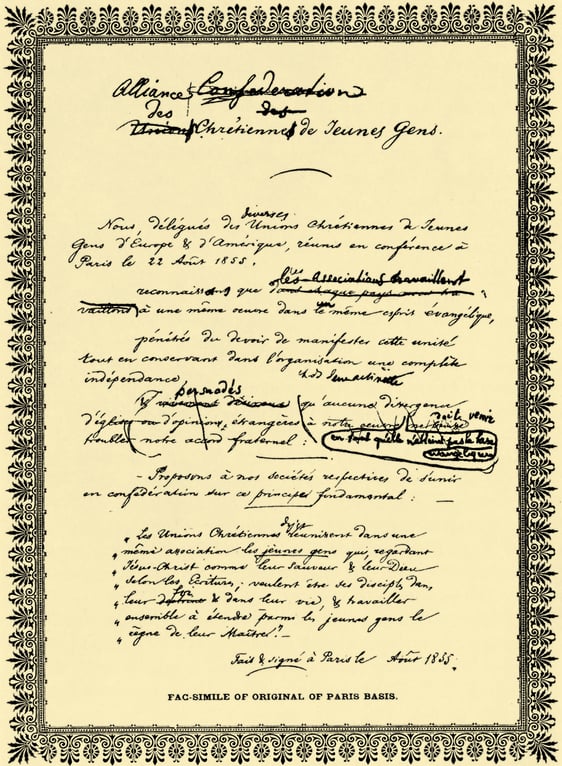 Alliance Confédération
des des
Unions Chrétiennes de Jeunes Gens.
diverses
Nous, délégués des Unions Chrétiennes de Jeunes
Gens d'Europe & d'Amérique, réunis en conférence à
Paris le 22 Août 1855,
les Associations travaillent
reconnaissons que
vaillons à une même oeuvre dans un même esprit évangélique,
pénétrés du devoir de manifester cette unité
tout en conservant dans l'organisation une complète
indépendance
persuadés
& qu'aucune divergence
doit venir
d'église ou d'opinions, étrangères à notre oeuvre
troubler notre accord fraternel :
évangélique
- Proposons à nos sociétés respectives de s'unir
en confédération sur ce principe fondamental : —
„ Les Unions Chrétiennes réunissent dans une
„ même association les jeunes gens qui, regardant
„ Jésus-Christ comme leur Sauveur & leur Dieu
„ selon les Écritures, veulent être ses disciples dans
foi
„ leur doctrine & dans leur vie, & travailler
„ ensemble à étendre parmi les jeunes gens le
„ règne de leur Maître." —
Fait & signé à Paris le Août 1855.
FAC-SIMILE OF ORIGINAL OF PARIS BASIS.